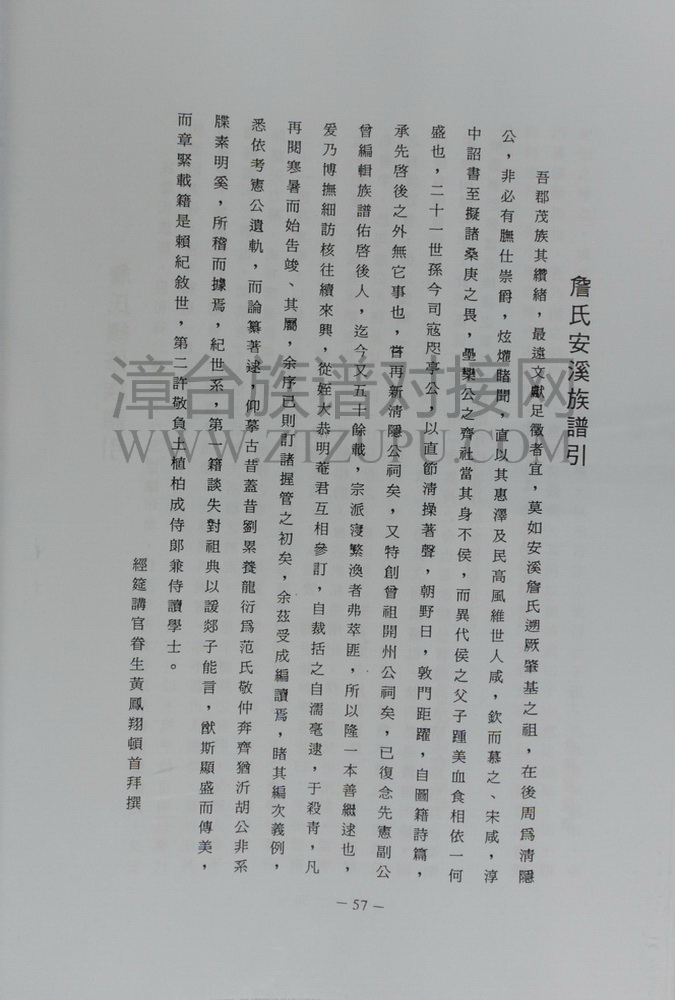 詹氏安溪族譜引
吾郡茂族其纘緒，最遠文獻足徵者宜，莫如安溪詹氏遡厥肇基之祖，在後周爲清隱
公，非必有膴仕崇爵，炫爝睹聞，直以其惠澤及民高風維世人咸，欽而慕之、宋咸，淳
中詔書至擬諸桑庚之畏，壘欒公之齊社當其身不侯，而異代侯之父子踵美血食相依一何
盛也，二十一世孫今司寇咫亭公，以直節清操著聲，朝野日，敦門距躍，自圖籍詩篇，
承先啓後之外無它事也，嘗再新清隱公祠矣，又特創曾祖開州公祠矣，已復念先憲副公
曾編輯族譜佑啓後人，迄今又五十餘載，宗派寖繁渙者弗萃匪，所以隆一本善繼逮也，
爰乃博撫細訪核往續來興，從姪大恭明菴君互相參訂，自裁括之自濡毫逮，于殺靑，凡
再閱寒暑而始告竣、其屬，余序已則訂諸握管之初矣，余茲受成編讀焉，睹其編次義例，
悉依考憲公遺軌，而論纂著逮，仰摹古昔蓋昔劉累養龍衍爲范氏敬仲奔齊猶沂胡公非系
牒素明奚，所稽而據焉，紀世系，第一籍談失對祖典以諼郯子能言，猷斯顯盛而傳美，
而章緊載籍是賴紀敘世，第二許敬負土植柏成侍郎兼侍讀學士。
經筵講官眷生黃鳳翔頓首拜撰
— 57 —
漳台族谱对接网
WWW.ZTZUPU.COM